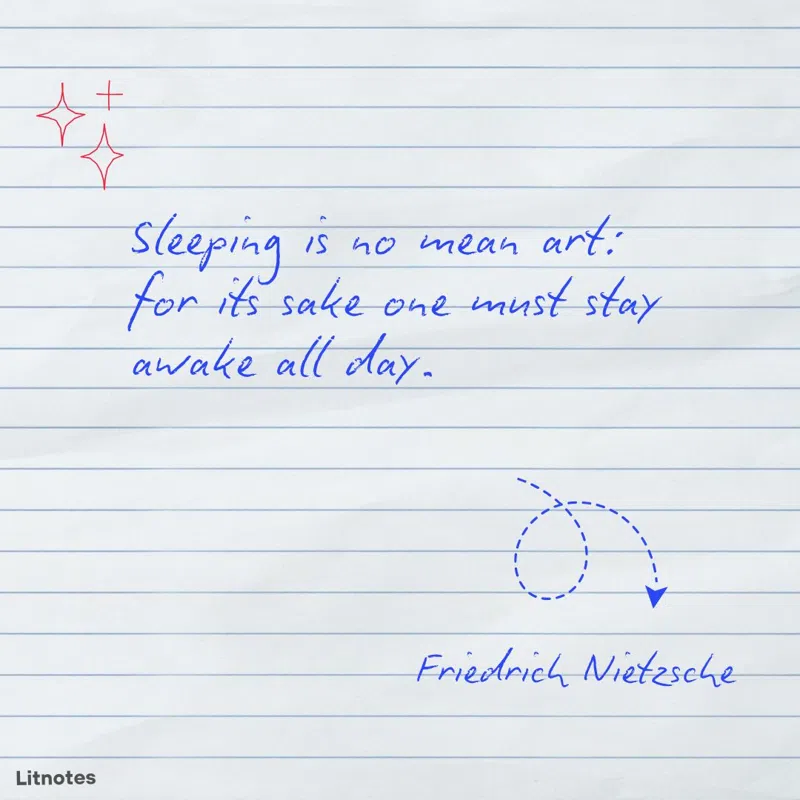 Sleeping is no mean art:
for its sake one must stay
awake all day.
Friedrich Nietzsche
Litnotes